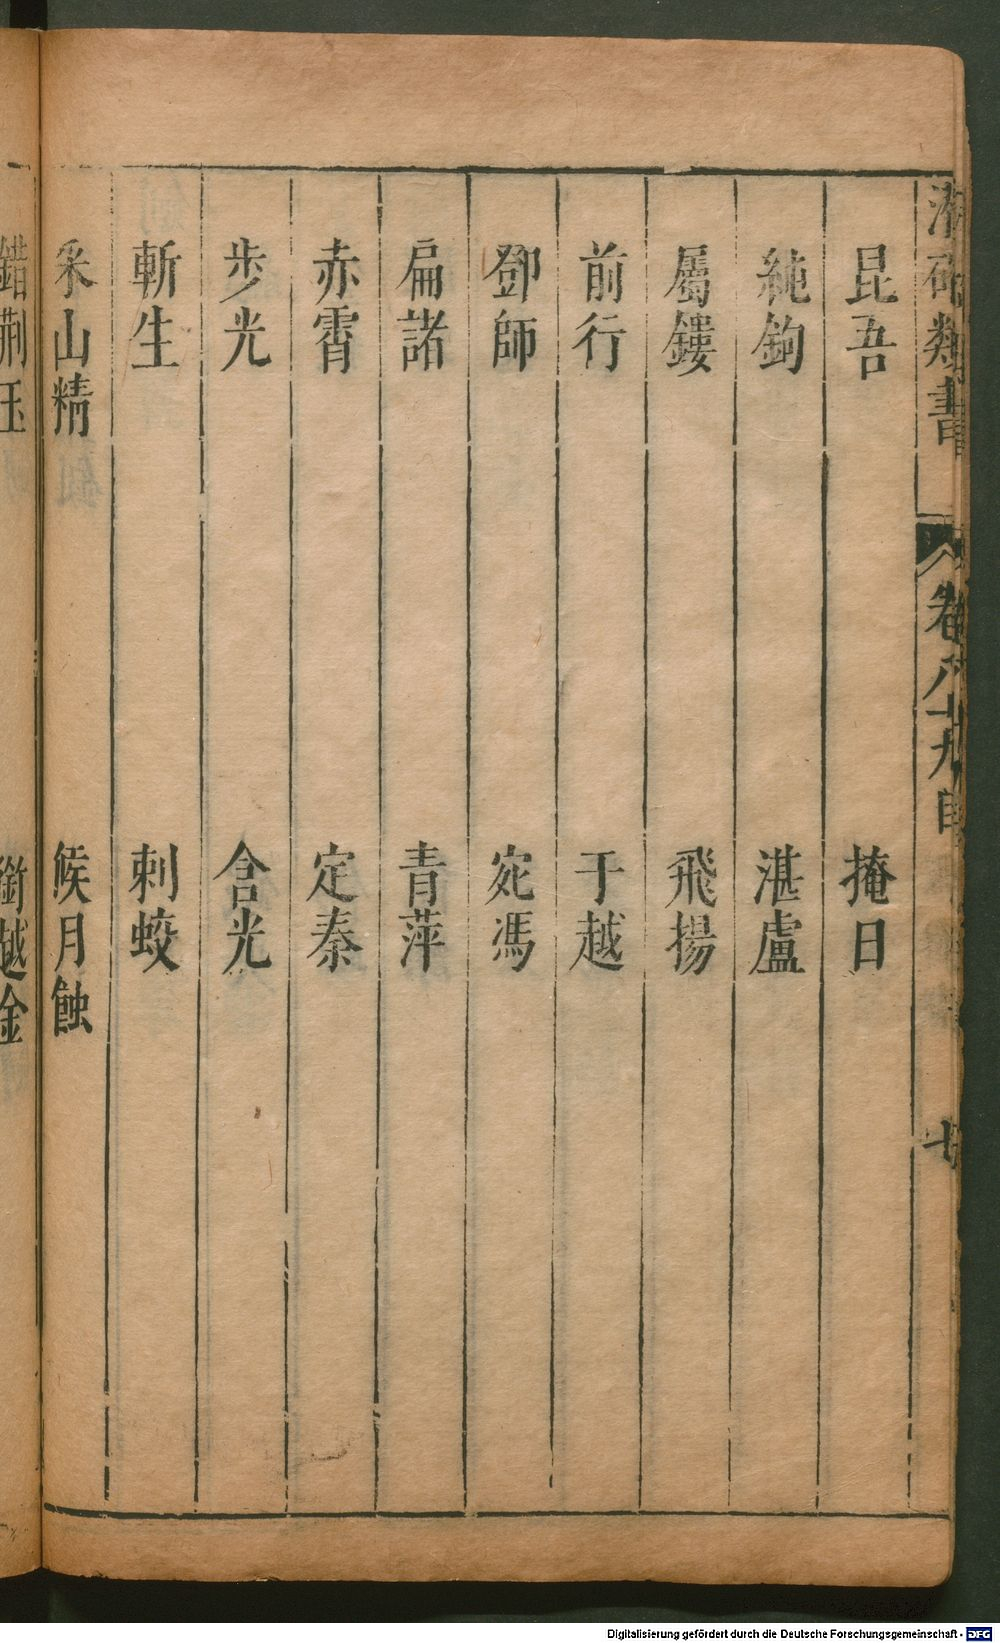 類書 卷八十九目
昆吾 掩日
純鉤 湛盧
屬鏤 飛揚
前行 于越
鄧師 宛馮
扁諸 青萍
赤霄 定秦
步光 含光
斬生 刺蛟
采山精 候月蝕
錯荆玉 越金
Digitalisierung gefördert durch die Deutsche Forschungsgemeinschaft - DFG